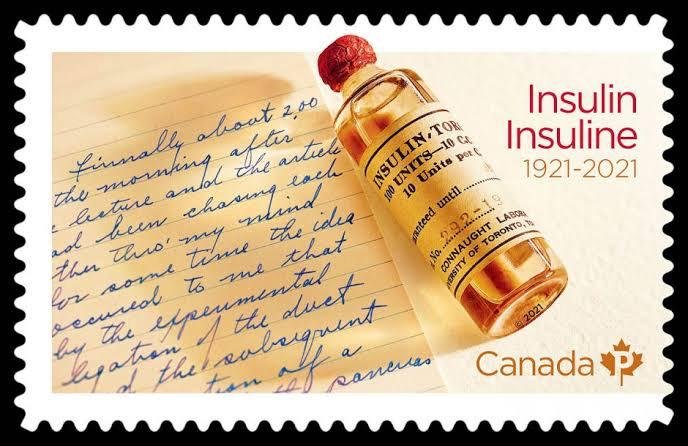 finnally about 2,00
the morning after
lecture and the article
ad been chasing each
ther thro' my mind
for some time the idea
occured to me that
by the experimental
ligation of the duct
d the subsequent
tion of a
the pancreas
INSULIN, TOR
100 UNITS—10 C.c.
10 Units per
ranteed until
No. 292-19
CONNAUGHT LABORA
VERSITY OF TORONTO, TO
© 2021
Insulin
Insuline
1921-2021
Canada P